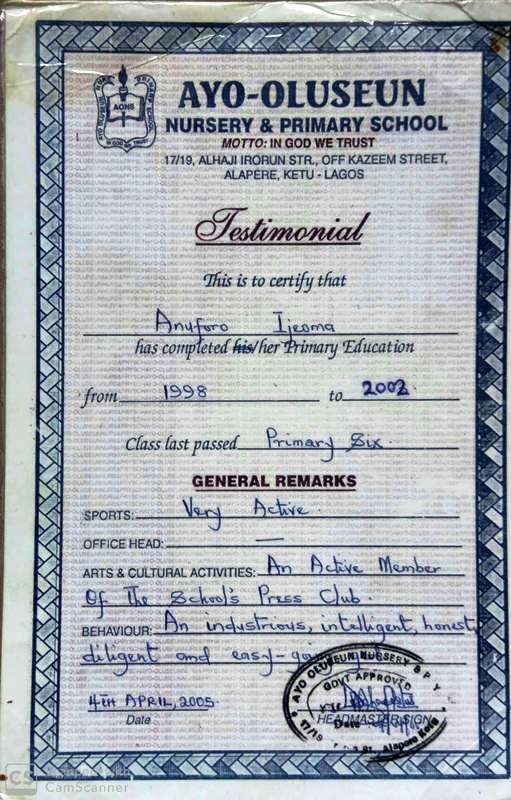 AYO-OLUSEUN
NURSERY & PRIMARY SCHOOL
MOTTO: IN GOD WE TRUST
17/19, ALHAJI IRORUN STR., OFF KAZEEM STREET,
ALAPERE, KETU - LAGOS
AONS
IN GOD WE TRUST
Testimonial
This is to certify that
Anuforo Ijeoma
has completed his/her Primary Education
from 1998 to 2002
Class last passed Primary Six.
GENERAL REMARKS
SPORTS: Very Active.
OFFICE HEAD: —
ARTS & CULTURAL ACTIVITIES: An Active Member
Of The School's Press Club.
BEHAVIOUR: An industrious, intelligent, honest,
diligent and easy-going
4TH APRIL, 2005
Date
HEADMASTER SIGN
AYO OLUSEUN NURSERY & P
GOVT APPROVED
Date
17/19
Alapere Ketu
CS
CamScanner